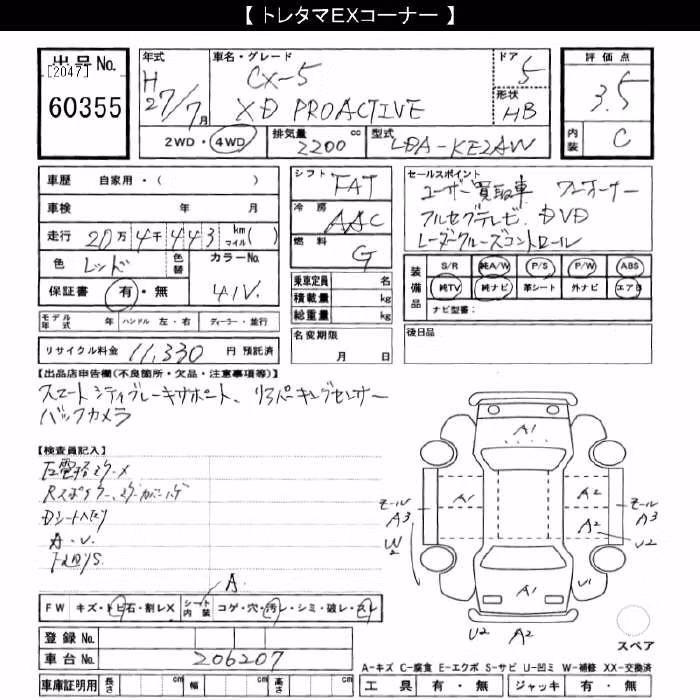 【 トレタマEXコーナー 】
出品No.
[2047]
60355
年式
H
27/7月
車名・グレード
CX-5
XD PROACTIVE
ドア
5
形状
HB
評価点
3.5
内装
C
2WD・4WD
排気量
2200 cc
型式
LDA-KE2AW
車歴 自家用・( )
車検 年 月
走行 20万 4千 443 km マイル( )
色 レッド 色替
カラーNo.
41V.
保証書 有・無
モデル年式 年 ハンドル 左・右 ディーラー・並行
リサイクル料金 11,330 円 預託済
シフト
FAT
冷房
AAC
燃料
G
乗車定員 名
積載量 kg
総重量 kg
名変期限
月 日
セールスポイント
ユーザー買取車 ワンオーナー
フルセグテレビ、DVD
レーダークルーズコントロール
装備品
S/R 純A/W P/S P/W ABS
純TV 純ナビ 革シート 外ナビ エアB
ナビ型番:
後日品
【出品店申告欄(不良箇所・欠品・注意事項等)】
スマートシティブレーキサポート、リアパーキングセンサー
バックカメラ
【検査員記入】
Dシートヘタリ
A・U.
FW キズ・トビ石・割レX シート内装 コゲ・穴・汚レ・シミ・破レ・スレ
A.
登録No.
車台No. 206207
車庫証明用 長さ cm 幅 cm 高さ cm
A1
A1
A2
A2
モール
A3
W2
モール
A3
U2
A1
U1
U2 A2
スペア
A-キズ C-腐食 E-エクボ S-サビ U-凹ミ W-補修 XX-交換済
工具 有・無 ジャッキ 有・無